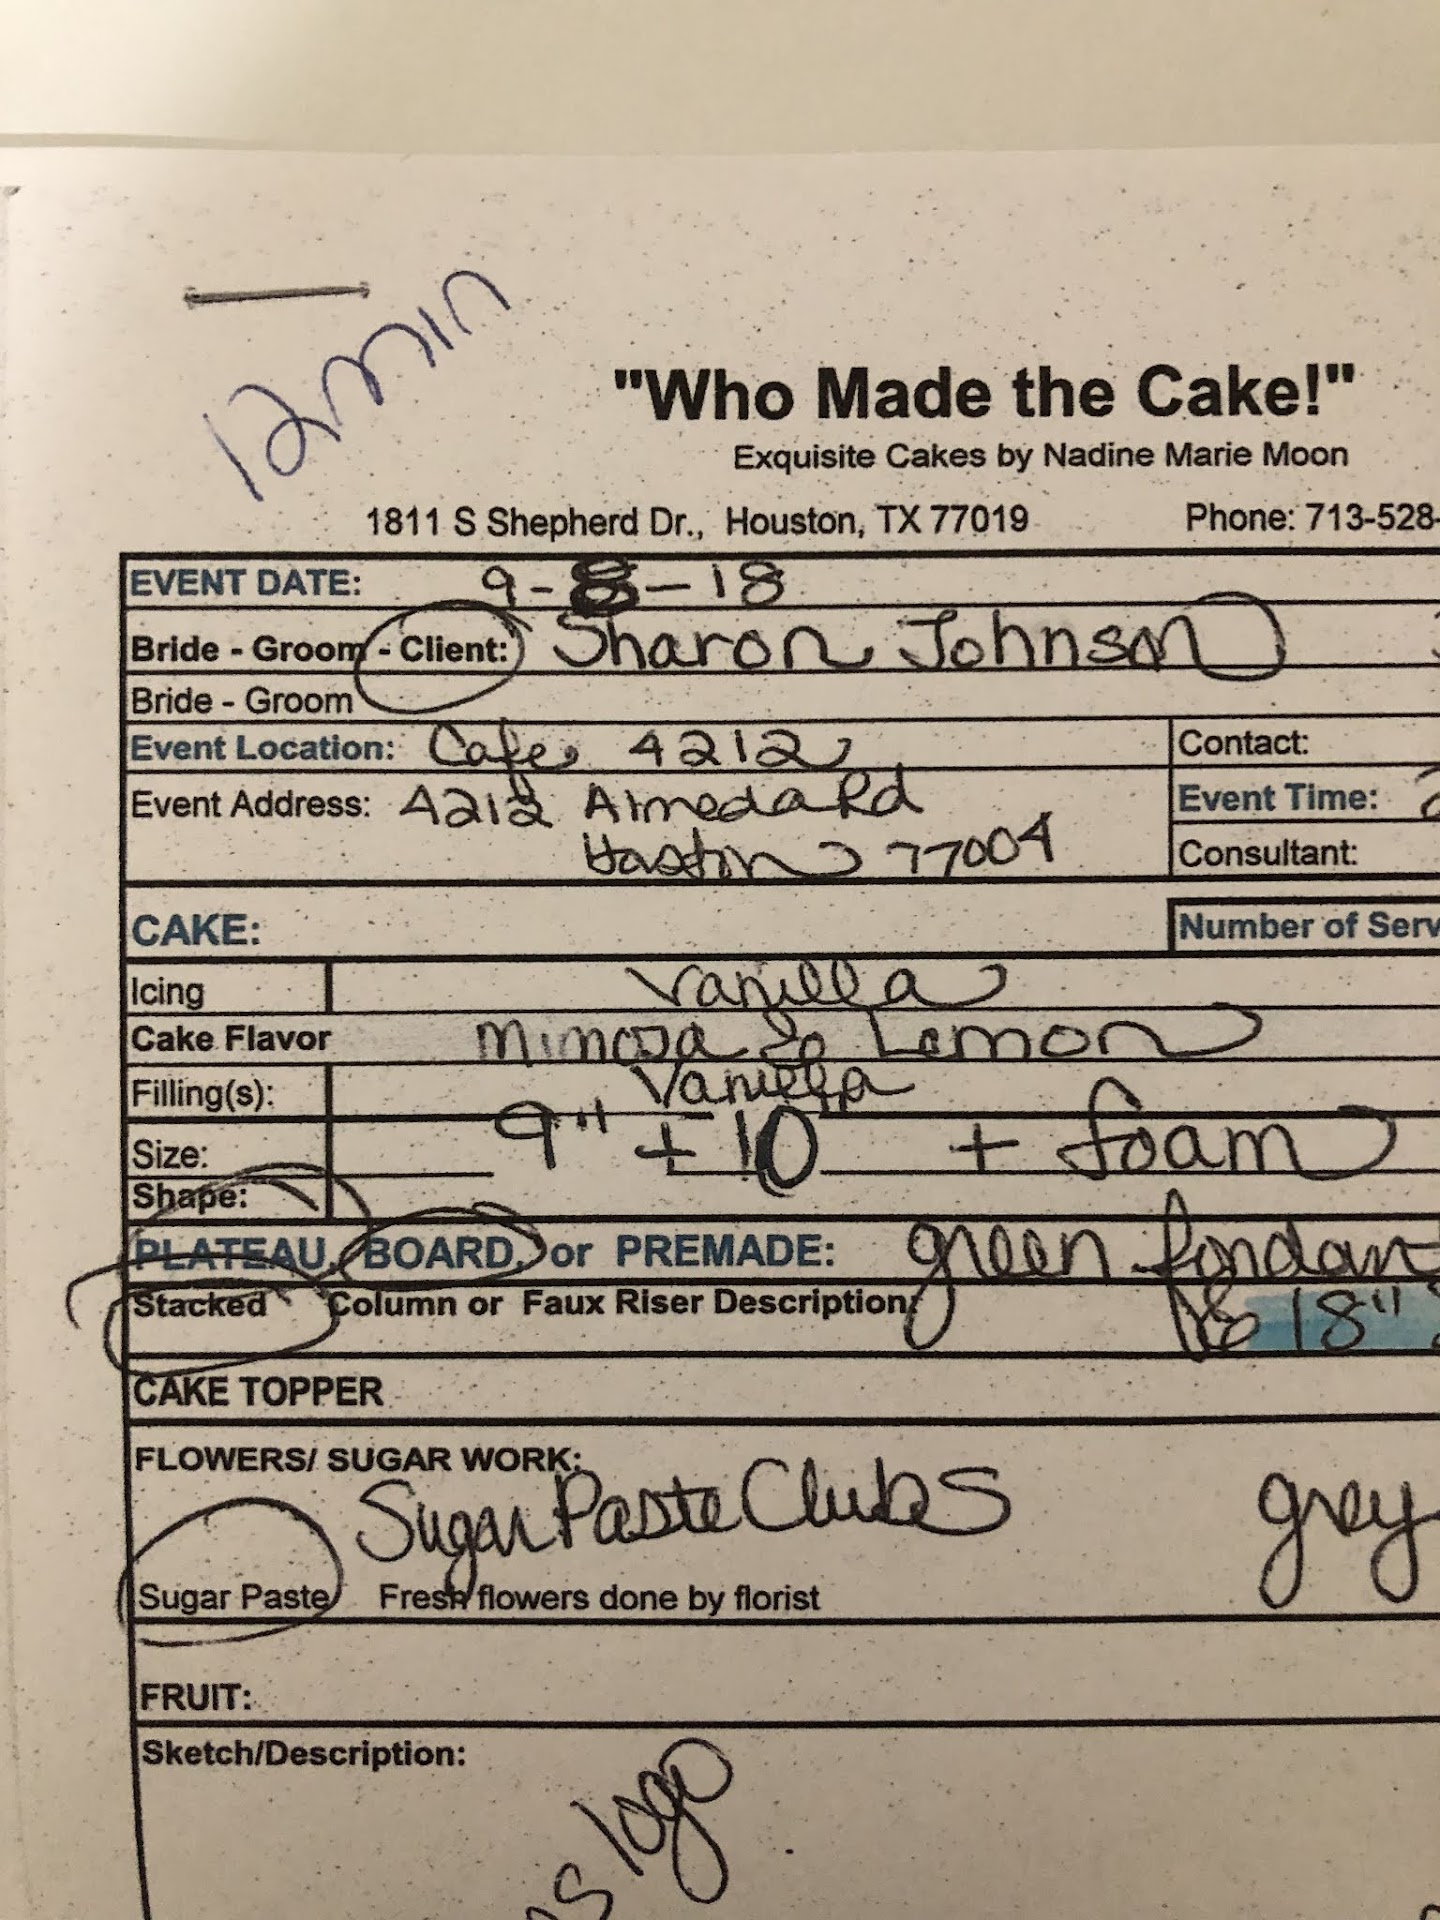 12min
"Who Made the Cake!"
Exquisite Cakes by Nadine Marie Moon
1811 S Shepherd Dr., Houston, TX 77019 Phone: 713-528-
EVENT DATE: 9-8-18
Bride - Groom - Client: Sharon Johnson
Bride - Groom
Event Location: Cafe 4212
Contact:
Event Address: 4212 Almeda Rd
Event Time: 2
Houston 77004
Consultant:
CAKE:
Number of Serv
Icing Vanilla
Cake Flavor Mimosa Lemon
Filling(s): Vanilla
Size: 9" + 10 + foam
Shape:
PLATEAU, BOARD, or PREMADE: green fondant
Stacked Column or Faux Riser Description: 18"
CAKE TOPPER
FLOWERS/ SUGAR WORK:
Sugar Paste Clubs grey
Sugar Paste Fresh flowers done by florist
FRUIT:
Sketch/Description:
logo